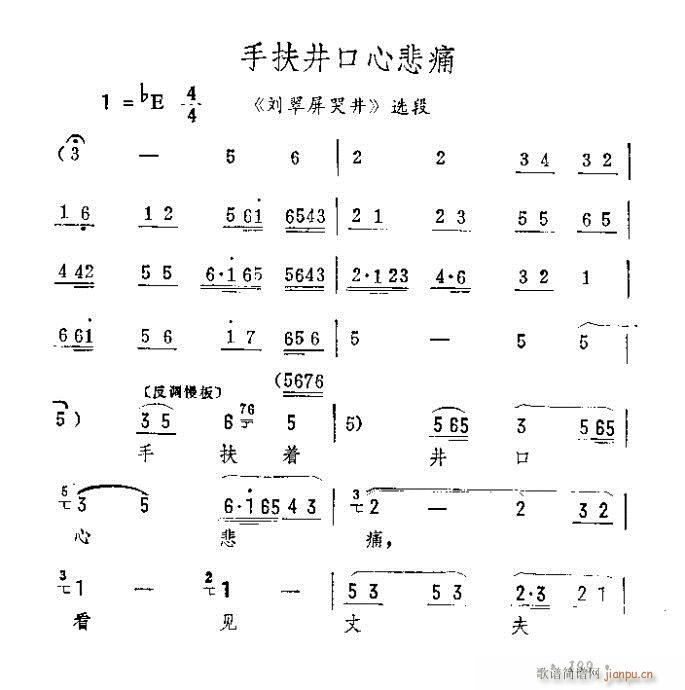 手扶井口心悲痛
1 = ♭E 4/4 《刘翠屏哭井》选段
(3 — 5 6 | 2 2 3 4 3 2 |
1 6 1 2 5 61 6543 | 2 1 2 3 5 5 6 5 |
4 42 5 5 6·165 5643 | 2·123 4·6 3 2 1 |
6 61 5 6 1 7 65 6 | 5 — 5 5 |
〔反调慢板〕 (5676
5) 3 5 6 76 5 | 5) 5 65 3 5 65 |
手 扶 着 井 口
5 3 5 6·165 4 3 | 3 2 — 2 3 2 |
心 悲 痛,
3 1 — 2 1 — | 5 3 5 3 2·3 2 1 |
看 见 丈 夫
歌谱简谱网
jianpu.cn